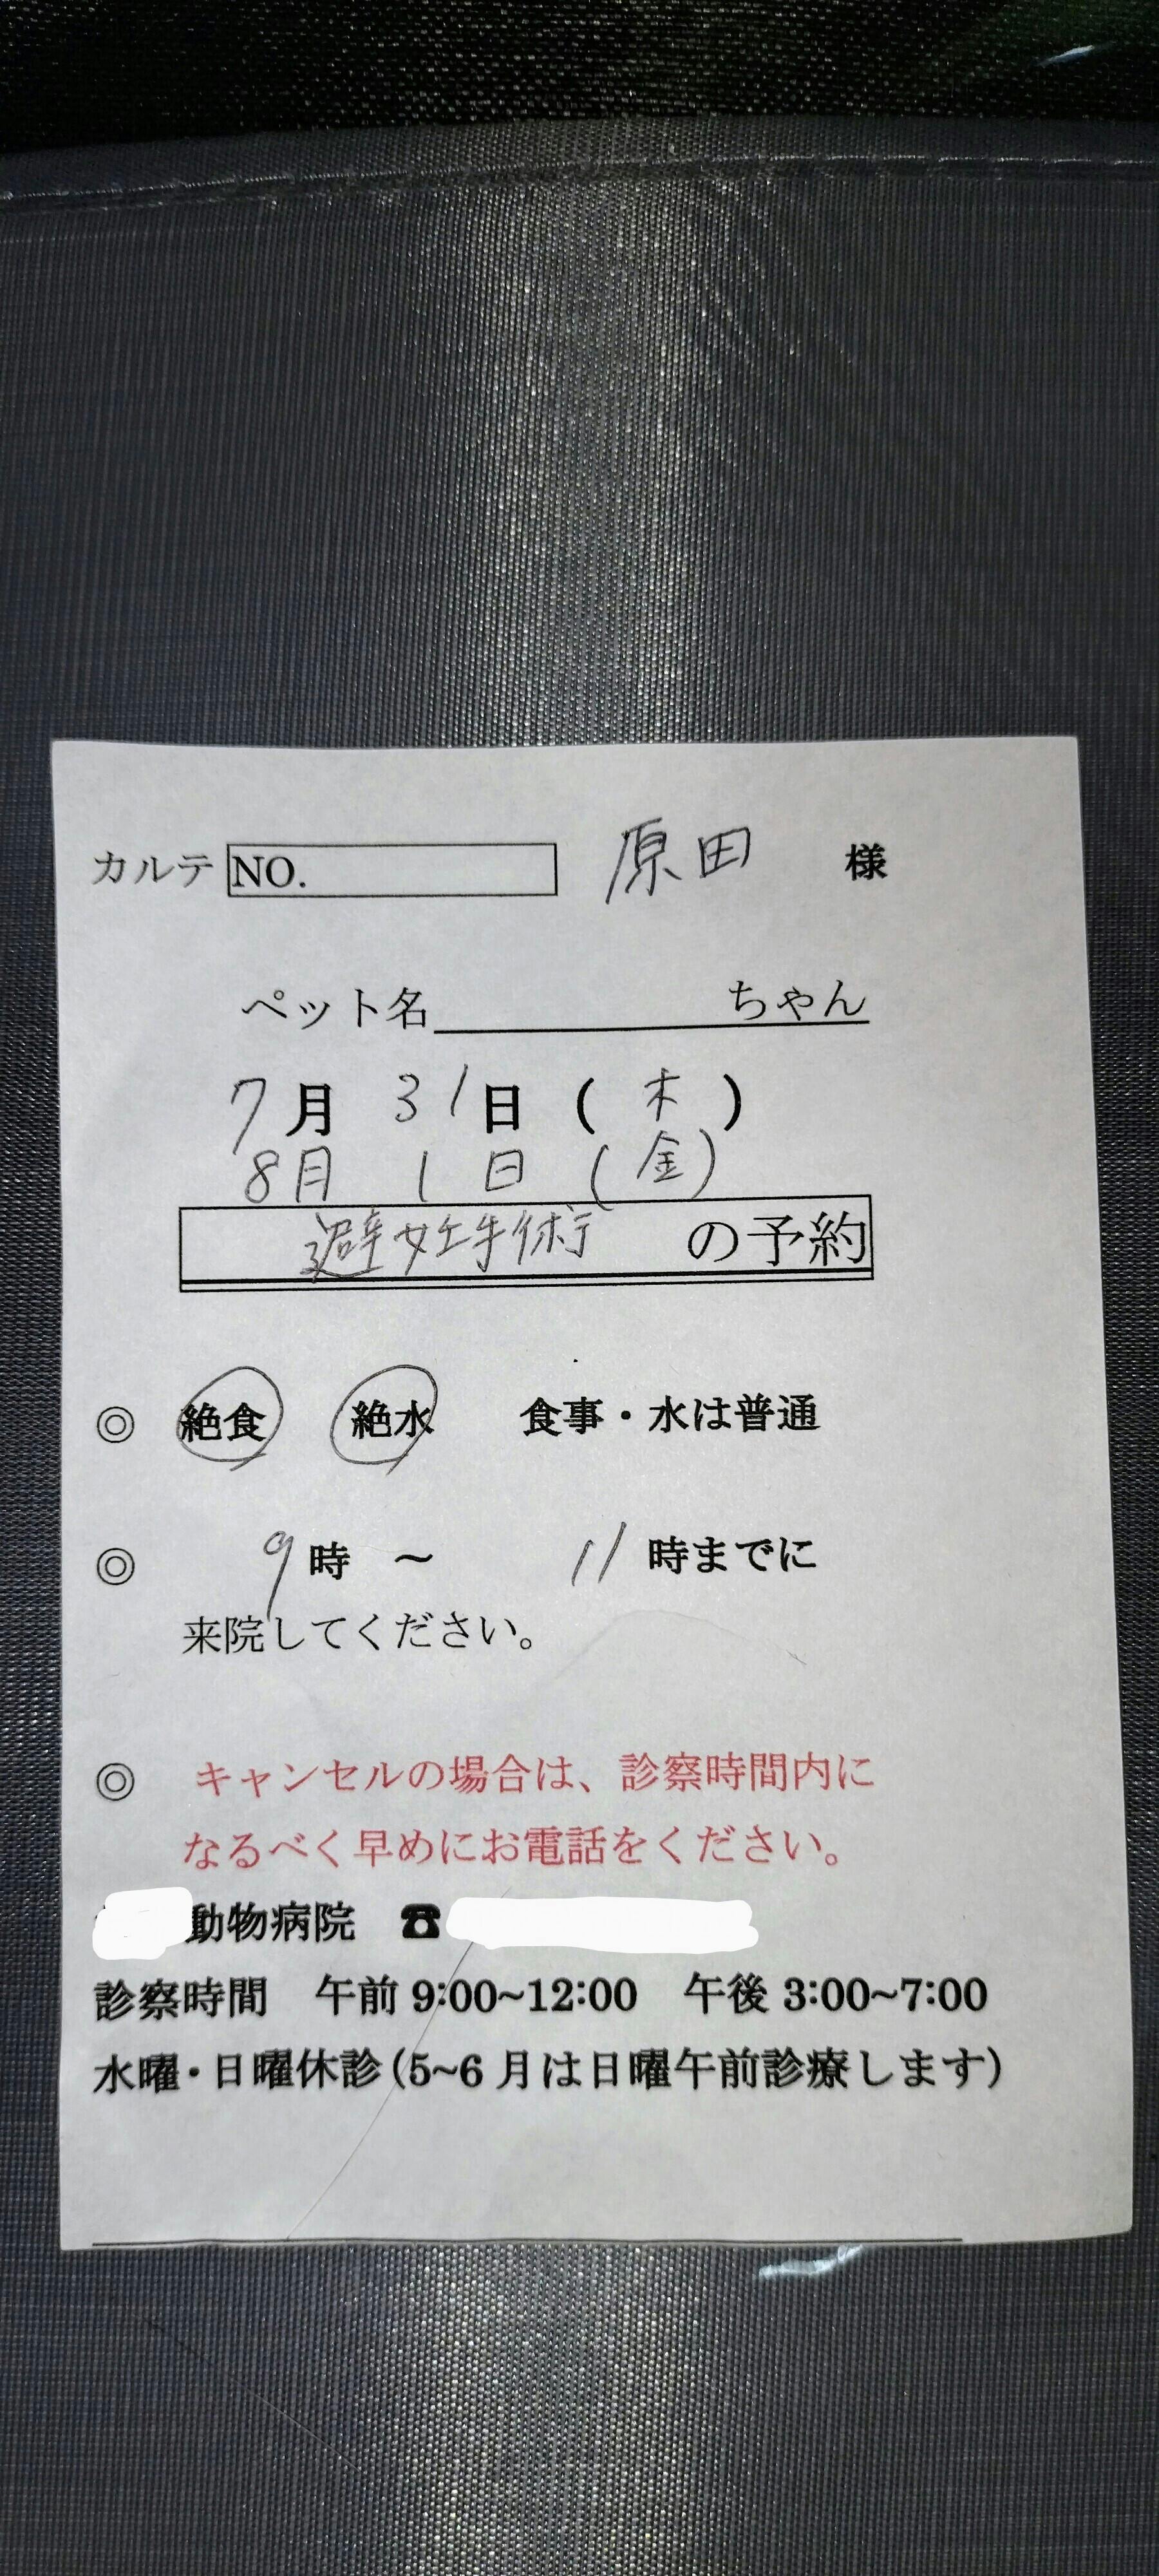 カルテ NO. 原田 様
ペット名 ちゃん
7月 31日 (木)
8月 1日 (金)
避妊手術 の予約
◎ 絶食 絶水 食事・水は普通
◎ 9時 ～ 11時までに
来院してください。
◎ キャンセルの場合は、診察時間内に
なるべく早めにお電話をください。
動物病院 ☎
診察時間 午前 9:00~12:00 午後 3:00~7:00
水曜・日曜休診(5~6月は日曜午前診療します)